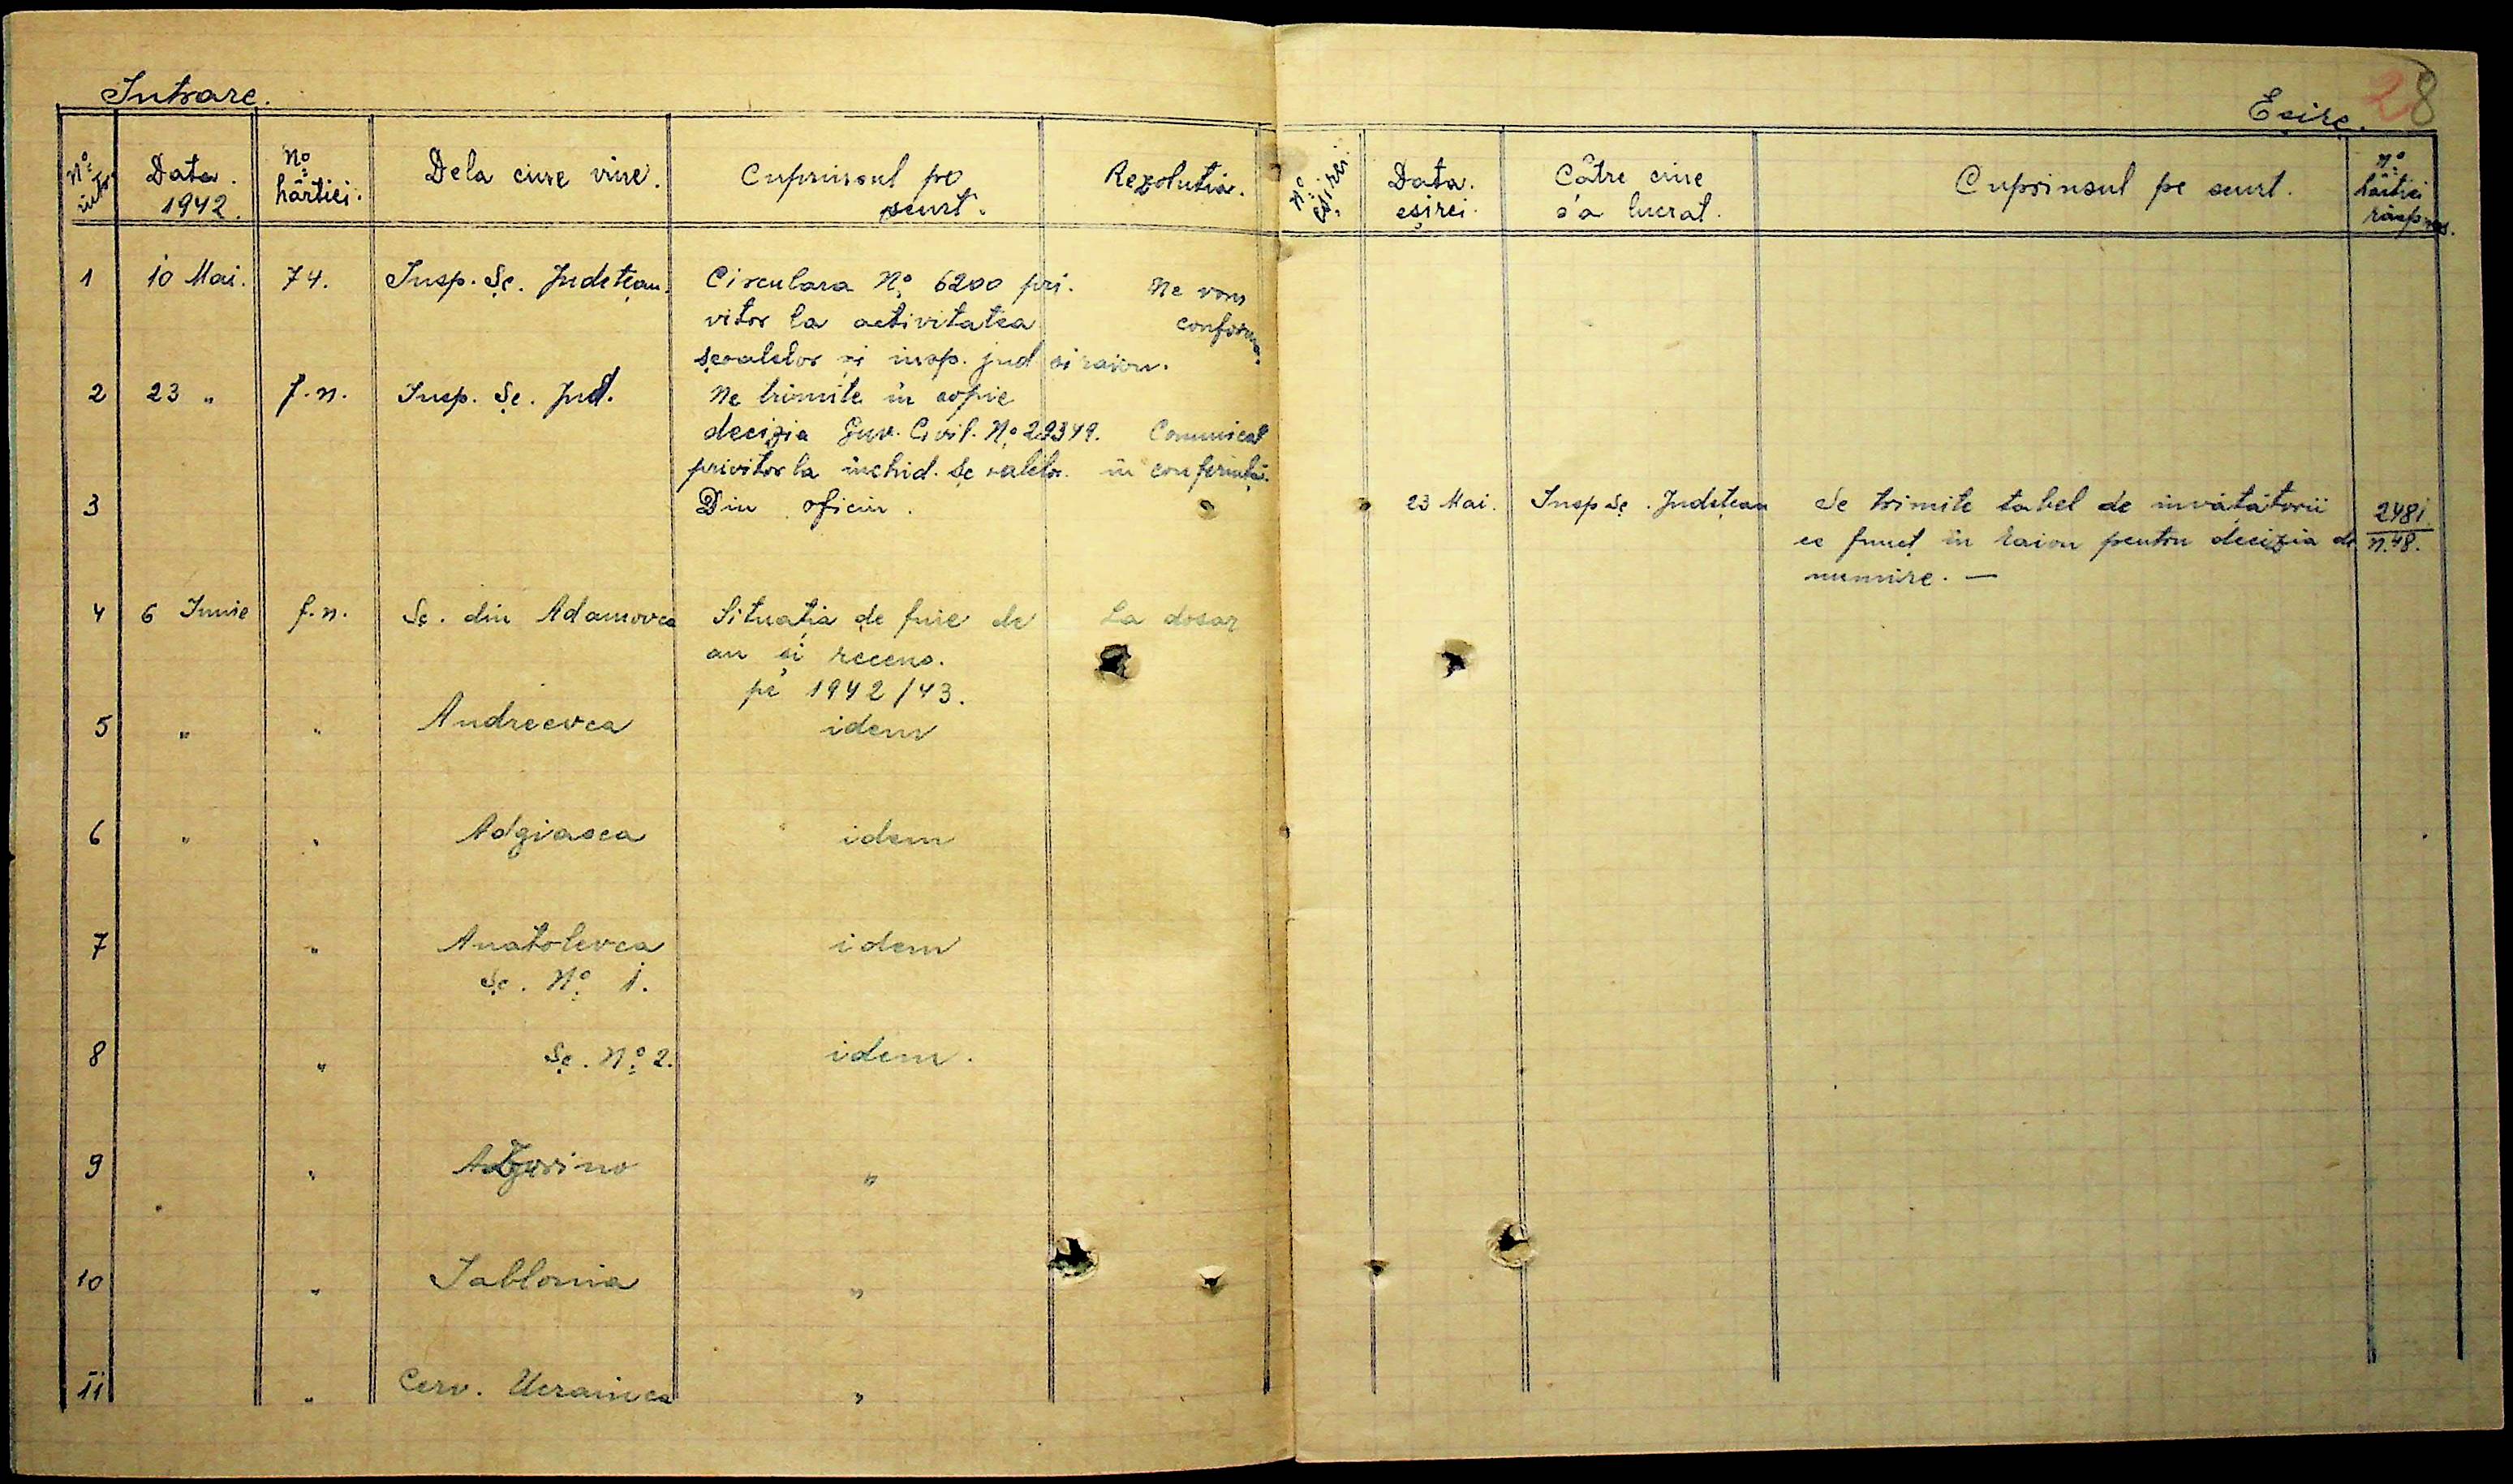 Intrare.
Eșire.
28
Nº intr.
Data 1942.
Nº hârtiei.
Dela cine vine.
Cuprinsul pe scurt.
Rezoluția.
Nº eșirei.
Data eșirei.
Către cine s'a lucrat.
Cuprinsul pe scurt.
Nº hârtiei răspuns.
1 10 Mai. 74. Insp. Șc. Județean. Circulara Nº 6200 pri- Ne vom
vitor la activitatea conforma.
școalelor și insp. jud și raion.
2 23 " f.n. Insp. Șc. Jud. Ne trimite în copie
decizia Guv. Civil. Nº 29349. Comunicat
privitor la închid. Școalelor. în conferință.
3 Din oficiu. 23 Mai. Insp Șc. Județean Se trimite tabel de învățătorii 2481
ce funcț în raion pentru decizia de n.48.
numire. —
4 6 Iunie f.n. Șc. din Adamovca Situația de fine de La dosar
an și recens.
pe 1942/43.
5 " " Andreevca idem
6 " " Adgiasca idem
7 " Anatolevca idem
Șc. Nº 1.
8 " Șc. Nº 2. idem.
9 " "
10 " Iablonia "
11 " Cerv. Ucrainca "